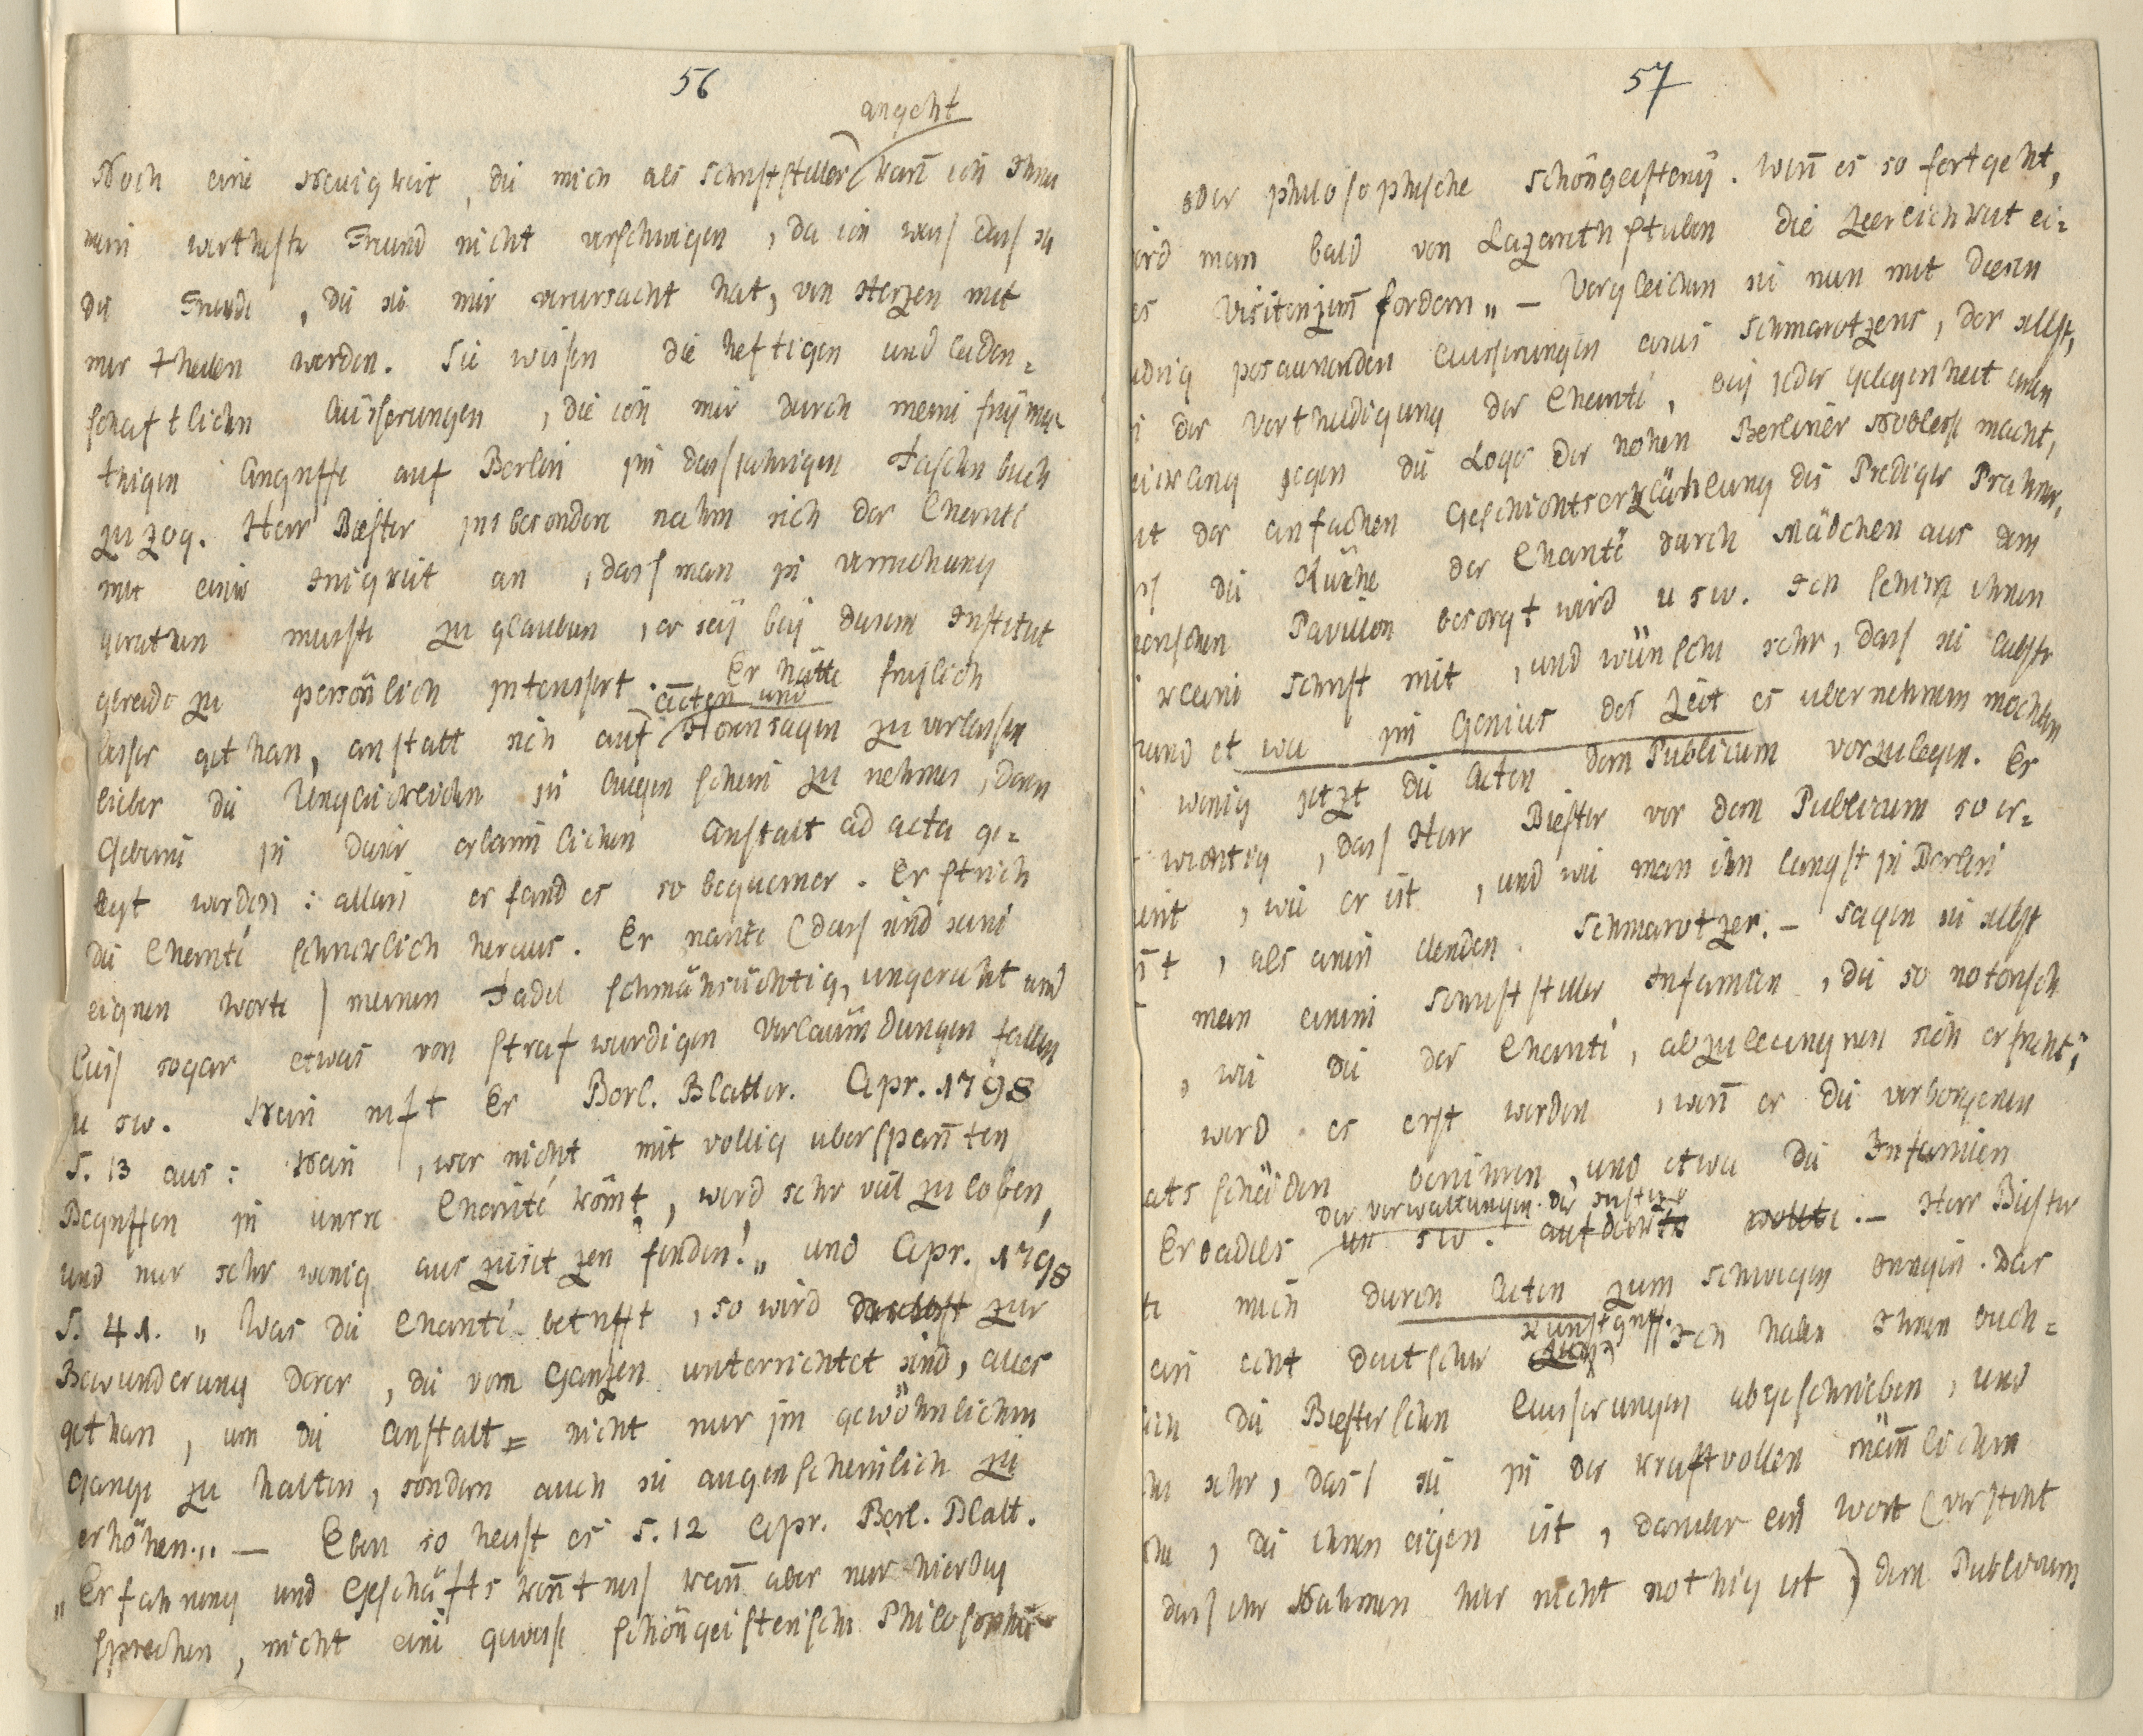 56
angeht
Noch eine Neuigkeit, die mich als Schriftsteller kan̄ ich Ihnen
mein werthester Freund nicht verschweigen, da ich weis das sie
die Freude, die sie mir verursacht hat, von Herzen mit
mir theilen werden. Sie wissen die heftigen und leiden=
schaftlichen Äusserungen, die ich mir durch meine freymü
thigen Angriffe auf Berlin im diesjahrigen Taschenbuch
zuzog. Herr Biester insbesondere nahm sich der Charité
mit einer Innigkeit an, dass man in Versuchung
gerathen muste zu glauben, er sey bey diesem Institut
geradezu persönlich interessirt. Er hätte freylich
Acten und
besser gethan, anstatt sich auf Hörensagen zu verlassen
lieber die Unglücklichen in Augenschein zu nehmen, deren
Gebeine in dieser erbärmlichen Anstalt ad acta ge=
legt werden: allein er fand es so bequemer. Er strich
die Charité schrecklich heraus. Er nante (das sind seine
eignen Worte) meinen Tadel schmähsüchtig, ungerecht und
lies sogar etwas von strafwurdigen Verlaümdungen fallen
u sw. Nein ruft Er Berl. Blatter. Apr. 1798
S. 13 aus: Nein, wer nicht mit vollig uberspan̄ten
Begriffen in unsre Charité kömt, wird sehr viel zu loben,
und nur sehr wenig auszusetzen finden!„ und Apr. 1798
S. 41. „Was die Charité betrifft, so wird daselbst zur
Bewunderung derer, die vom Ganzen unterrichtet sind, alles
gethan, um die Anstalt= nicht nur im gewöhnlichen
Gange zu halten, sondern auch sie augenscheinlich zu
erhöhen„. — Eben so heist es S. 12 Apr. Berl. Blatt.
„Erfahrung und Geschäftskentnis kan̄ aber nur hierbey
sprechen, nicht eine gewisse schöngeisterische Philosophie
57
oder philosophische Schöngeisterey. Wen̄ es so fortgeht,
ird man bald von Lazarethstuben die Zierlichkeit ei=
es Visitenzim̄ fordern„ — Vergleichen sie nun mit diesen
posaunenden Äusserungen eines Schmarotzers, der selbst,
der Vertheidigung der Charité, bey jeder Gelegenheit einen
gegen die Loge der hohen Berliner Noblesse macht,
it der einfachen Geschichtserzählung des Prediger Prahmer,
die Küche der Charité durch Mädchen aus dem
schen Pavillon besorgt wird u sw. Ich schicke ihnen
kleine Schrift mit, und wünschte sehr, dass sie liebster
und etwa im Genius der Zeit es ubernehmen mochten
wenig jetzt die Acten dem Publicum vorzulegen. Er
wichtig, dass Herr Biester vor dem Publicum so er=
eint, wie er ist, und wie man ihn langst in Berlin
t, als einen elenden Schmarotzer. — Sagen sie selbst
man einem Schriftsteller Infamien, die so notorisch
, wie die der Charité, abzuleugnen sich erfrecht;
wird es erst werden, wen̄ er die verborgenen
atsschäden berühren, und etwa die Infamien
der Verwaltungen der Justiz
Erbadels un sw. aufdeckte wollte. — Herr Biester
te mich durch Acten zum Schweigen bringen. Das
Kunstgriff.
ein echt deutscher Ich habe Ihnen buch=
die Biesterschen Äusserungen abgeschrieben, und
sehr, dass sie in der kraftvollen män̄lichen
, die ihnen eigen ist, daruber ein Wort (versteht
dass ihr Nahmen hier nicht nothig ist) dem Publicum